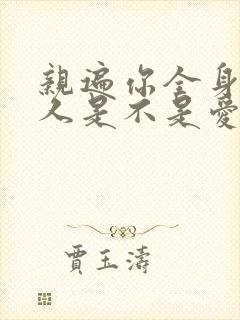 親遍你全身
久是不是愛
賈玉濤